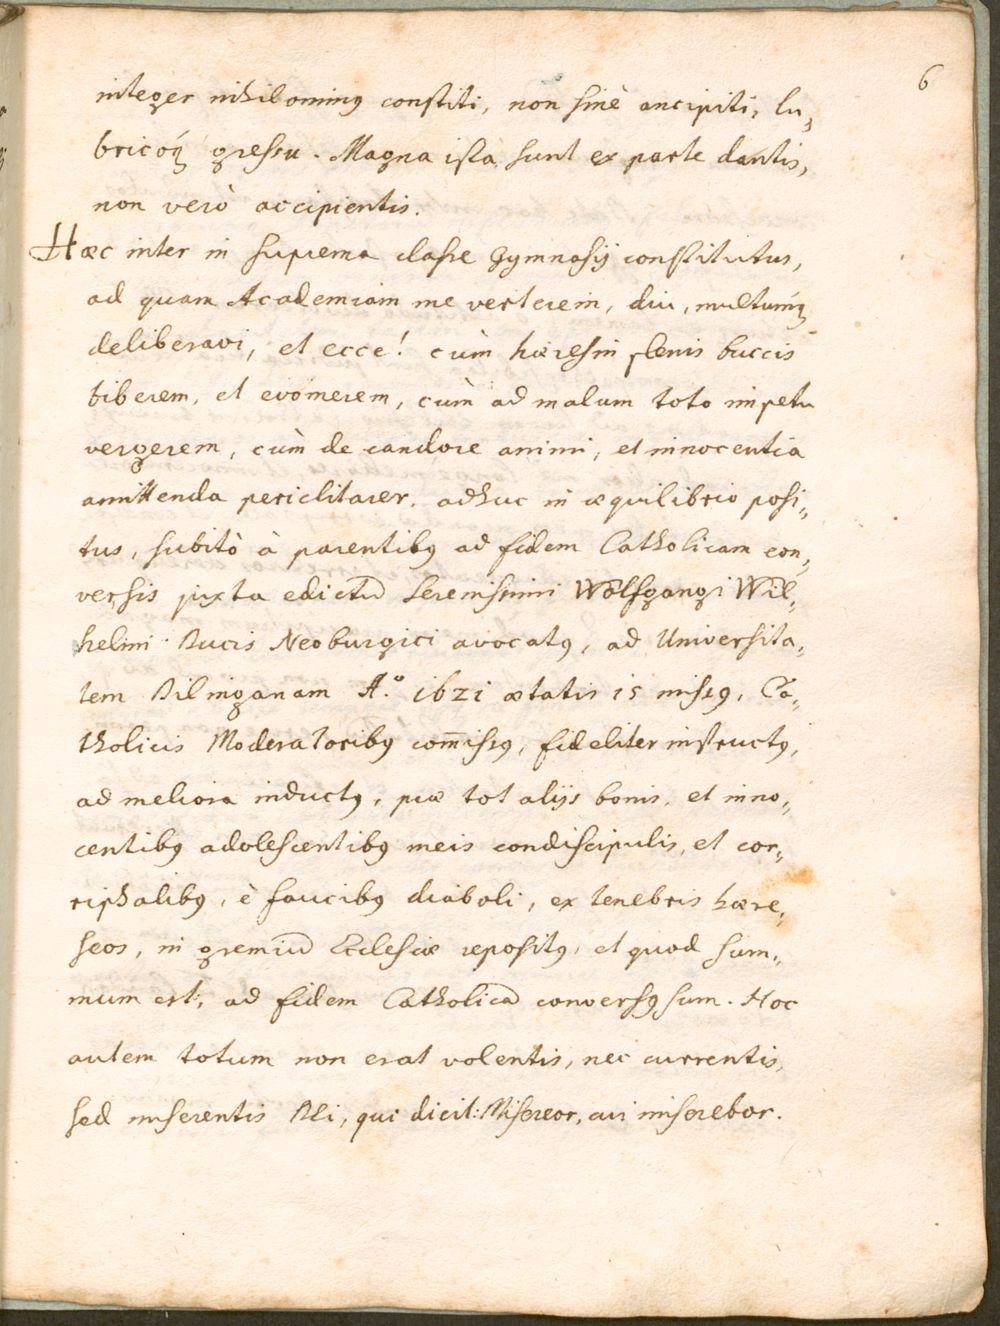 6
integer nihilominꝰ constiti, non sinè ancipiti, lu,,
bricoq́ꝫ gressu. Magna ista sunt ex parte dantis,
non verò accipientis.
Hæc inter in suprema classe Gymnasij constitutus,
ad quam Academiam me verterem, diu, multumq́ꝫ
deliberavi, et ecce! cùm hæresin plenis buccis
biberem, et evomerem, cùm ad malum toto impetu
vergerem, cùm de candore animi, et innocentia
amittenda periclitarer, adhuc in æquilibrio posi,,
tus, subitò à parentibꝰ ad fidem Catholicam con,,
versis juxta edictũ Serenissimi Wolfgangi Wil,,
helmi Ducis Neoburgici avocatꝰ, ad Universita,,
tem Dilinganam A.º 1621 ætatis 15 missꝰ, Ca,,
tholicis Moderatoribꝰ com̃issꝰ, fideliter instructꝰ,
ad meliora inductꝰ, præ tot alijs bonis, et inno,,
centibꝰ adolescentibꝰ meis condiscipulis, et cor,,
riphalibꝰ, è faucibꝰ diaboli, ex tenebris hære,,
seos, in gremiũ Ecclesiæ repositꝰ, et quod sum,,
mum est, ad fidem Catholicã conversꝰ sum. Hoc
autem totum non erat volentis, nec currentis,
sed miserentis DEi, qui dicit: Misereor, cui miserebor.